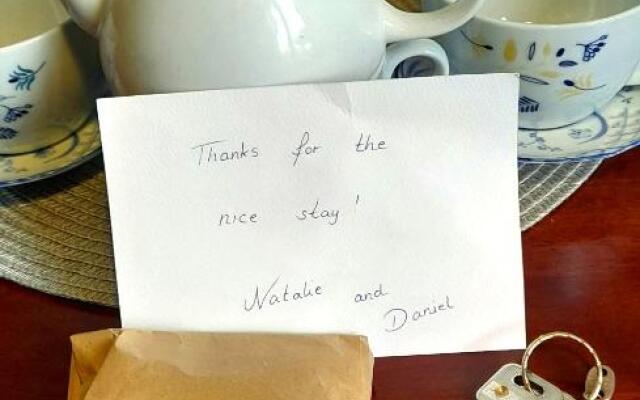 Thanks for the
nice stay!
Natalie and
Daniel